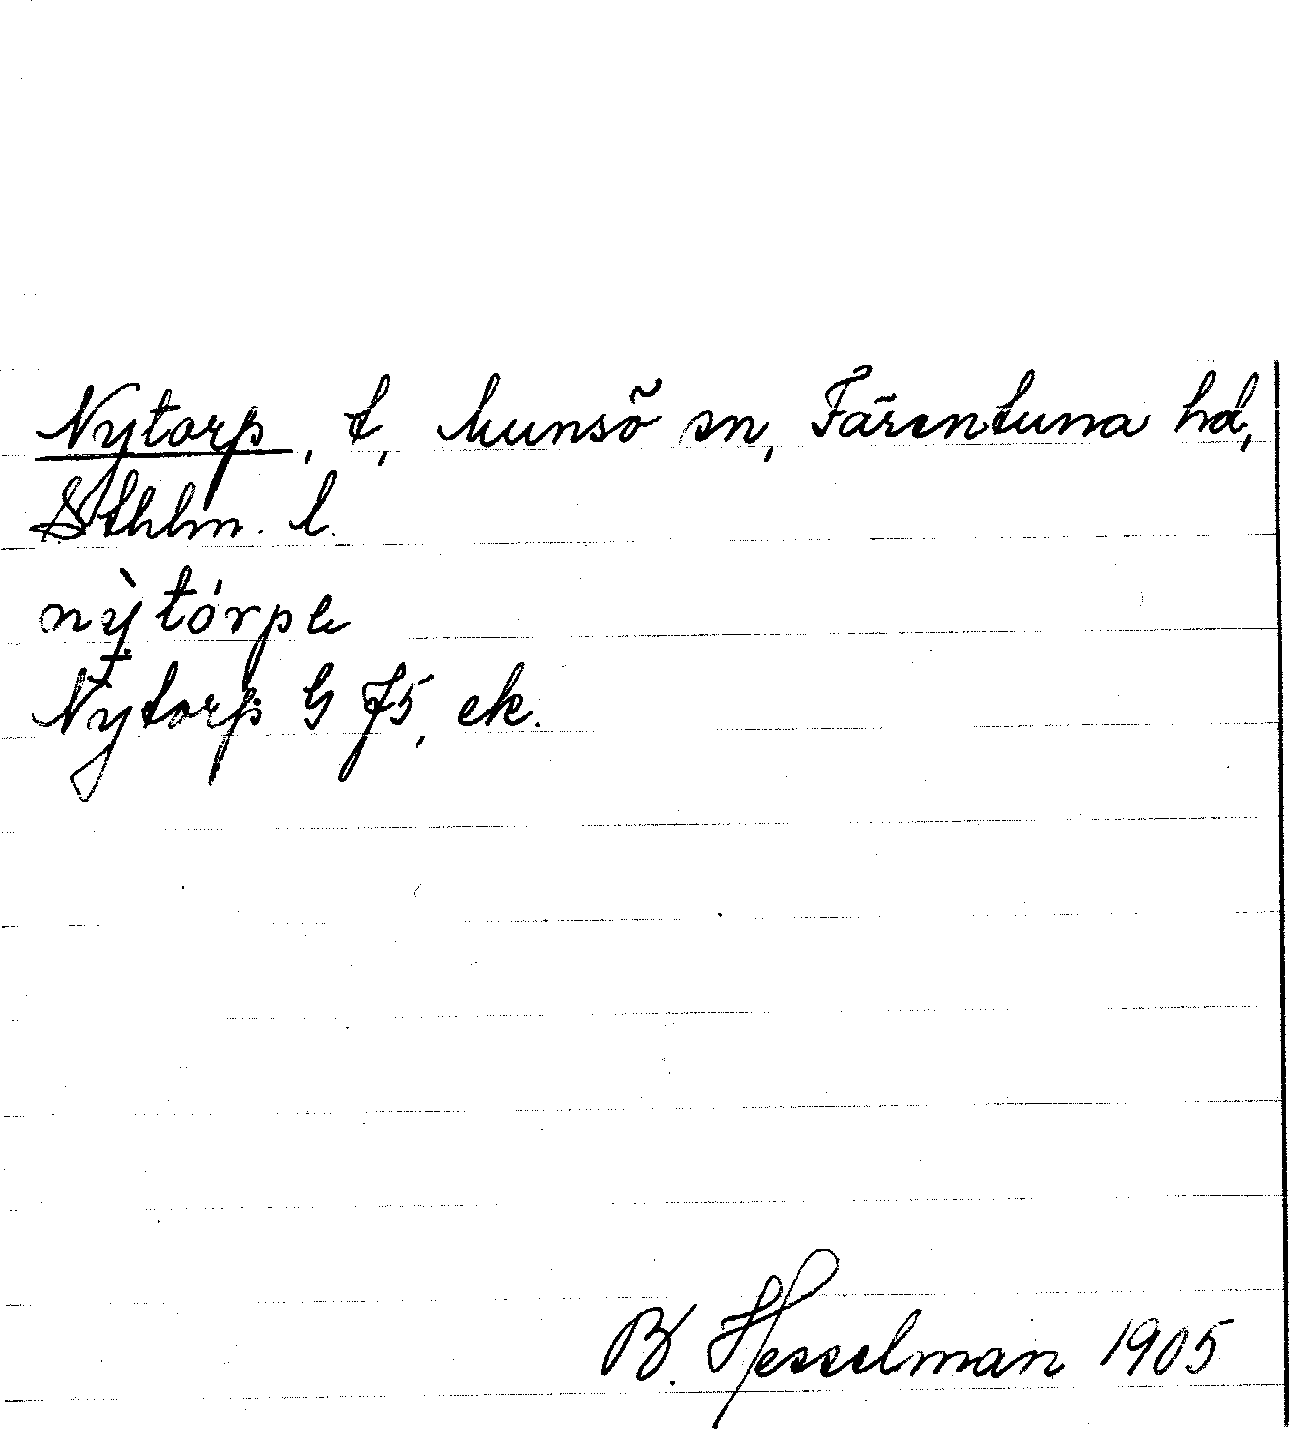 Nytorp, t, Munsö sn, Färentuna hd,
Sthlm. l.
nỳtórpe
Nytorp G 75, ek.
B. Hesselman 1905